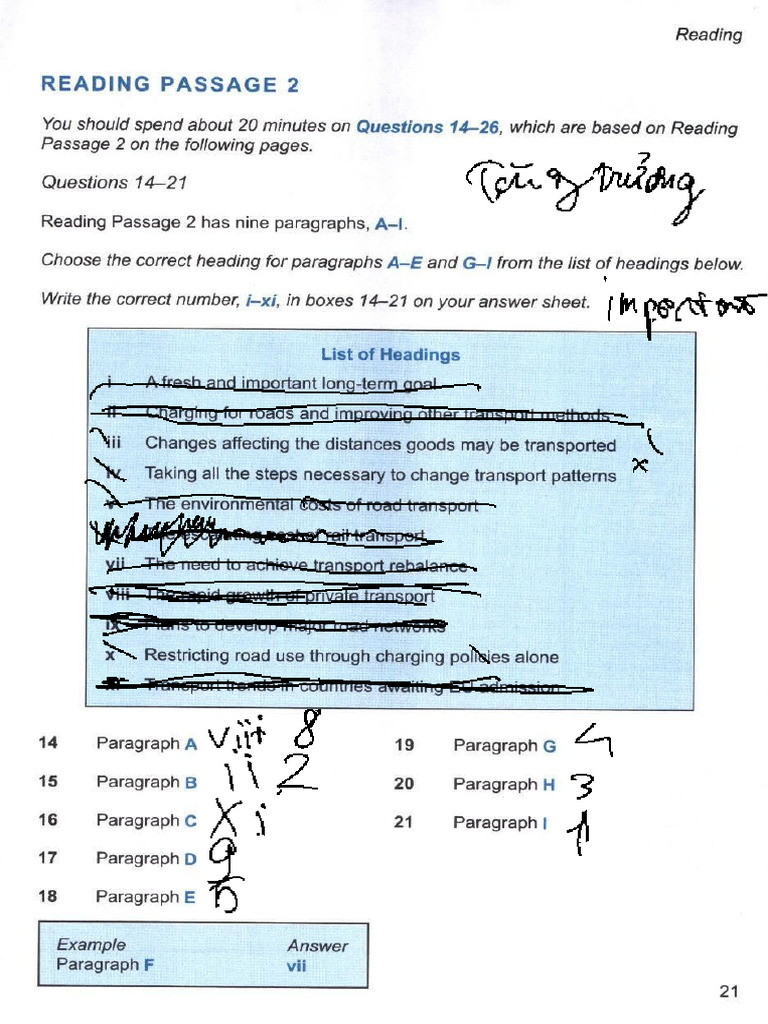 Reading
READING PASSAGE 2
You should spend about 20 minutes on Questions 14–26, which are based on Reading
Passage 2 on the following pages.
Tăng trưởng
Questions 14–21
Reading Passage 2 has nine paragraphs, A–I.
Choose the correct heading for paragraphs A–E and G–I from the list of headings below.
Write the correct number, i–xi, in boxes 14–21 on your answer sheet.
List of Headings
i A fresh and important long-term goal
ii Charging for roads and improving other transport methods
iii Changes affecting the distances goods may be transported
x
iv Taking all the steps necessary to change transport patterns
v The environmental costs of road transport
cost of rail transport
vii The need to achieve transport rebalance
viii The rapid growth of private transport
ix Plans to develop major road networks
x Restricting road use through charging policies alone
Transport trends in countries awaiting EU admission
14 Paragraph A viii 8
15 Paragraph B ii 2
16 Paragraph C Xi
17 Paragraph D 9
18 Paragraph E 5
19 Paragraph G 4
20 Paragraph H 3
21 Paragraph I 1
Example Answer
Paragraph F vii
21